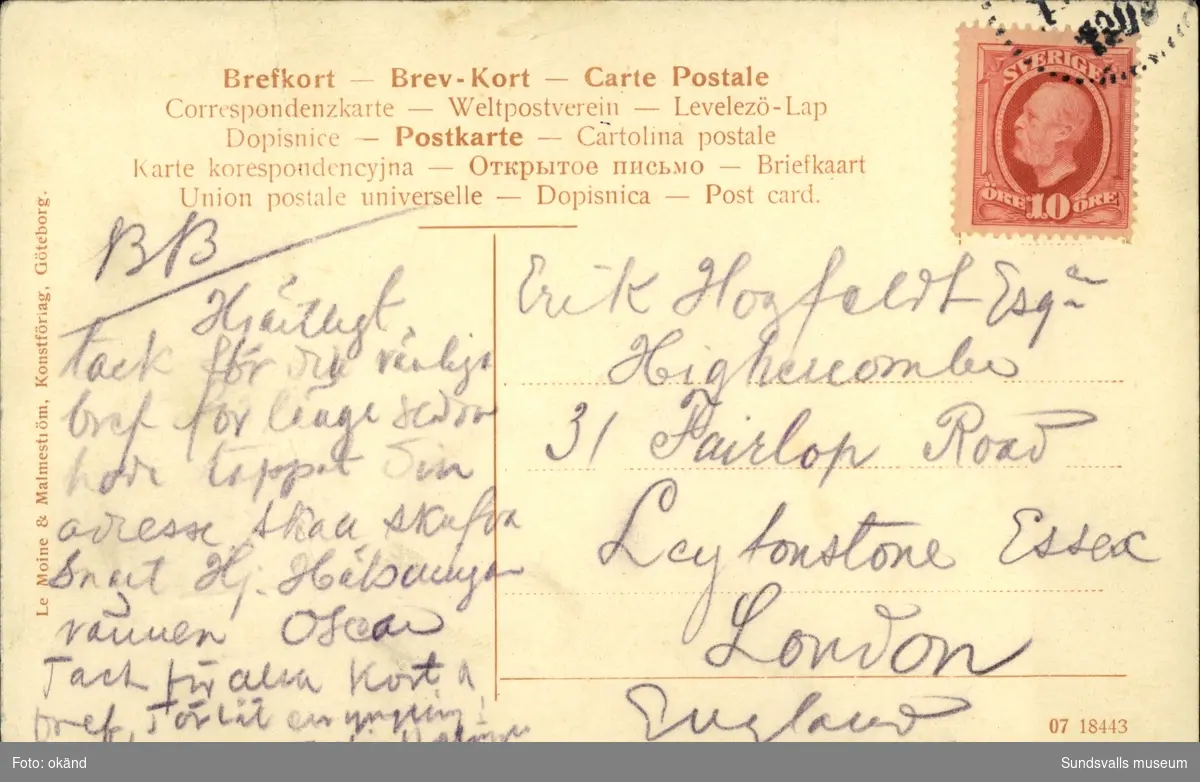 Brefkort — Brev-Kort — Carte Postale
Correspondenzkarte — Weltpostverein — Levelezö-Lap
Dopisnice — Postkarte — Cartolina postale
Karte korespondencyjna — Открытое письмо — Briefkaart
Union postale universelle — Dopisnica — Post card.
Le Moine & Malmeström, Konstförlag, Göteborg.
SVERIGE
ÖRE 10 ÖRE
BB
Hjärtligt
tack för din
bref för länge sedan
hade tappat Din
adresse skall skrifva
Snart Hj. Hälsningar
vännen Oscar
Tack för alla Kort &
bref, Förlåt en yngling!
Erik Hogfeldt Esqre
Highcombe
31 Fairlop Road
Leytonstone Essex
London
England
07 18443
Foto: okänd
Sundsvalls museum